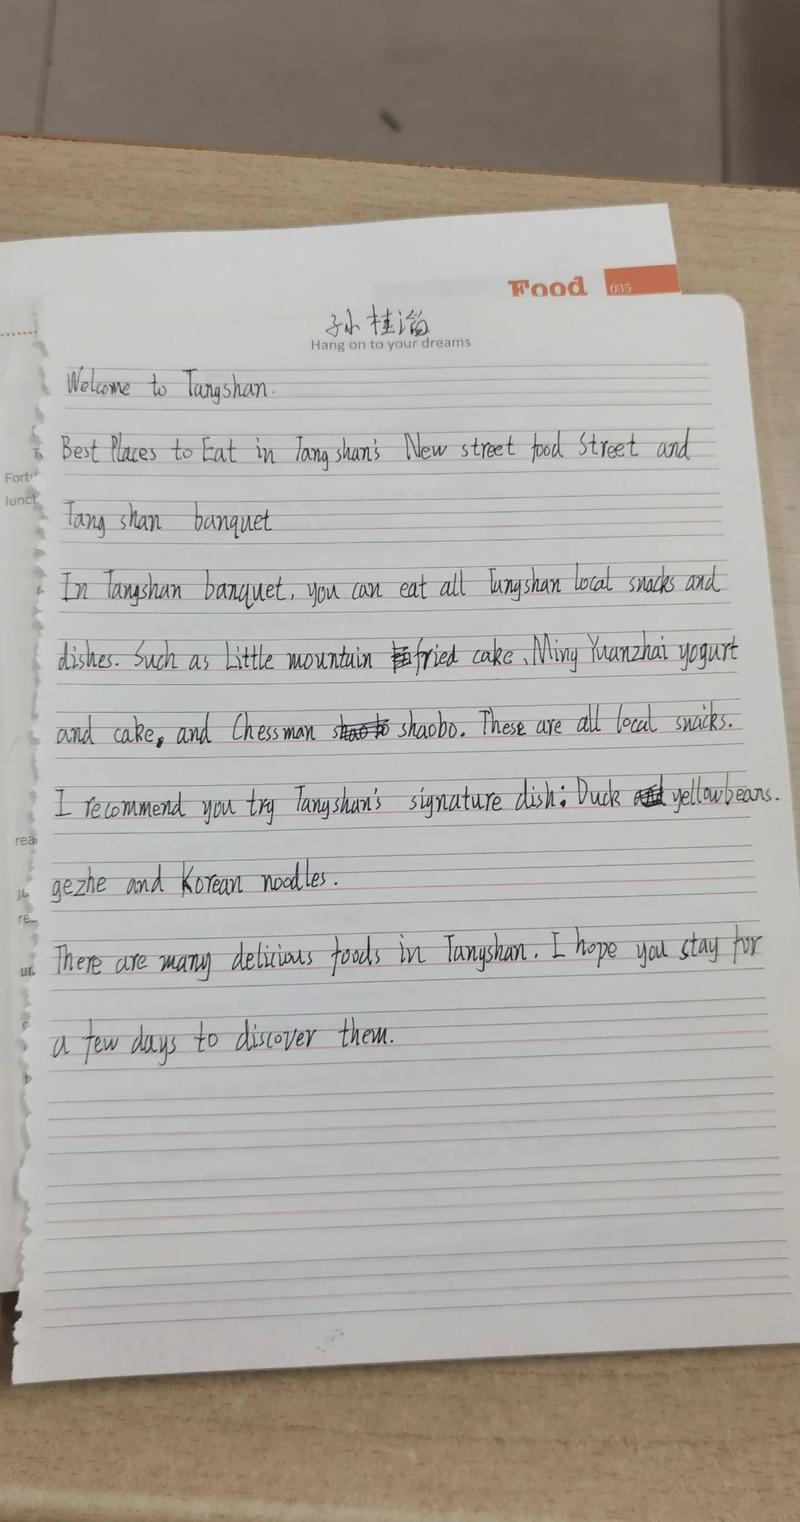 Food 035
孙桂
Hang on to your dreams
Welcome to Tangshan.
Best Places to Eat in Tang shan's New street food Street and
Tang shan banquet
In Tangshan banquet, you can eat all Tangshan local snacks and
dishes. Such as Little mountain fried cake、Ming Yuanzhai yogurt
and cake, and Chessman shaobo. These are all local snacks.
I recommend you try Tangshan's signature dish: Duck yellow beans.
gezhe and Korean noodles.
There are many delicious foods in Tangshan. I hope you stay for
a few days to discover them.